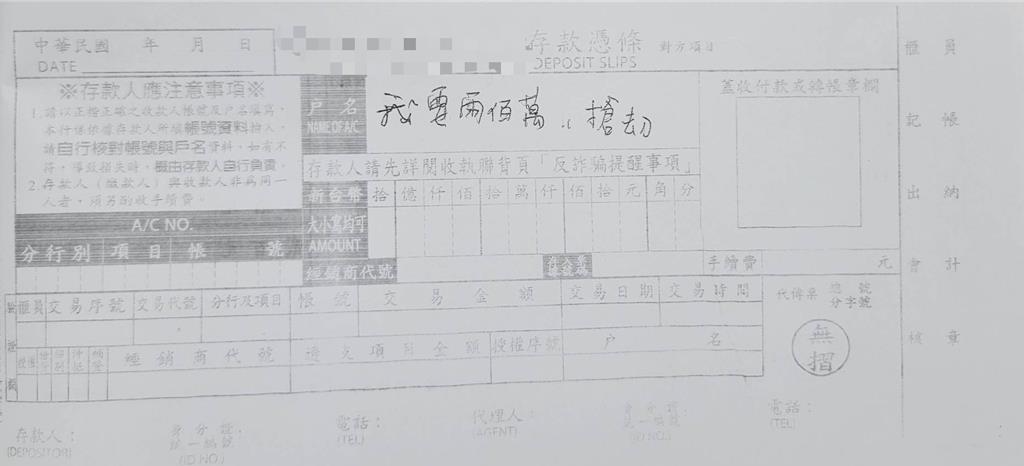 中華民國 年 月 日
DATE
存款憑條 對方項目
DEPOSIT SLIPS
櫃員
※存款人應注意事項※
1. 請以正楷正確之收款人帳號及戶名填寫，
本行係依據存款人所填帳號資料撥入，
請自行核對帳號與戶名資料，如有不
符，導致損失時，概由存款人自行負責。
2. 存款人（繳款人）與收款人非為同一
人者，須另酌收手續費。
戶名
NAME OF A/C
我要兩佰萬.. 搶劫
蓋收付款或轉帳章欄
記帳
存款人請先詳閱收執聯背頁「反詐騙提醒事項」
新台幣 拾 億 仟 佰 拾 萬 仟 佰 拾 元 角 分
大小寫均可
AMOUNT
出納
A/C NO.
分行別 項目 帳 號
經銷商代號
手續費 元
會計
櫃員 交易序號 交易代號 分行及項目 帳號 交易金額 交易日期 交易時間
代傳票 總號
分字號
經銷商代號 透支項目金額 授權序號 戶名
無摺
核章
存款人：
(DEPOSITOR)
身分證
統一編號
(ID NO.)
電話：
(TEL)
代理人：
(AGENT)
身分證
統一編號
(ID NO.)
電話：
(TEL)